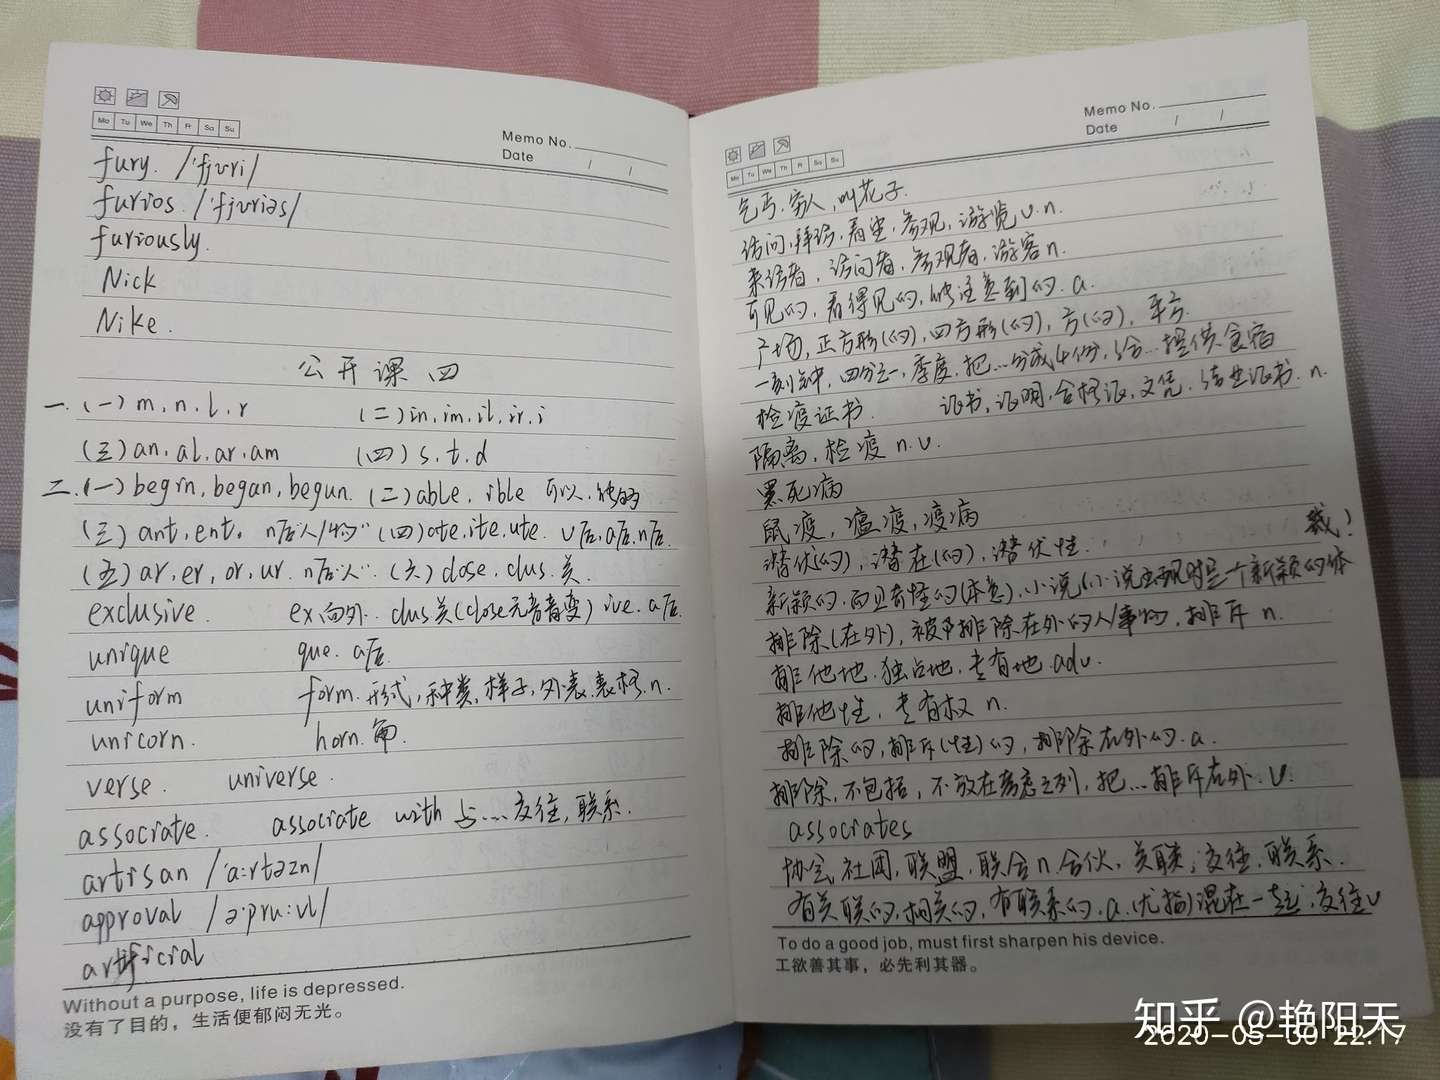 Mo Tu We Th Fr Sa Su
Memo No.
Date / /
fury. /'fjʊri/
furios. /'fjʊriəs/
furiously.
Nick
Nike.
公开课四
一.(一) m, n, l, r (二) in, im, il, ir, i
(三) an, al, ar, am (四) s, t, d
二.(一) begin, began, begun. (二) able, ible 可以,能够
(三) ant, ent. n后"人/物" (四) ate, ite, ute. v后,a后,n后.
(五) ar, er, or, ur. n后"人". (六) close, clus. 关.
exclusive ex 向外. clus 关(close元音音变) ive. a后.
unique que. a后.
uniform form. 形式,种类,样子,外表,表格. n.
unicorn. horn. 角.
verse. universe.
associate. associate with 与…交往,联系.
artisan /'a:rtəzn/
approval /ə'pru:vl/
artificial
Without a purpose, life is depressed.
没有了目的，生活便郁闷无光。
Mo Tu We Th Fr Sa Su
Memo No.
Date / /
乞丐,穷人,叫花子.
访问,拜访,看望,参观,游览 v. n.
来访者,访问者,参观者,游客 n.
可见的,看得见的,能注意到的. a.
广场,正方形(的),四方形(的),方(的),平方.
一刻钟,四分之一,季度,把…分成4份,给…提供食宿
检疫证书. 证书,证明,合格证,文凭,结业证书. n.
隔离,检疫 n. v.
黑死病
鼠疫,瘟疫,疫病
潜伏(的),潜在(的),潜伏性. 裁!
新颖的,而且奇怪的(本意),小说(小说出现时是一个新颖的体
排除(在外),被排除在外的人/事物,排斥 n.
排他地,独占地,专有地. adv.
排他性,专有权 n.
排除的,排斥(性)的,排除在外的. a.
排除,不包括,不放在考虑之列,把…排斥在外. v.
associates
协会,社团,联盟,联合 n. 合伙,关联,交往,联系.
有关联的,相关的,有联系的. a. (尤指)混在一起,交往 v
To do a good job, must first sharpen his device.
工欲善其事，必先利其器。
知乎 @艳阳天
2020-05-30 22:17